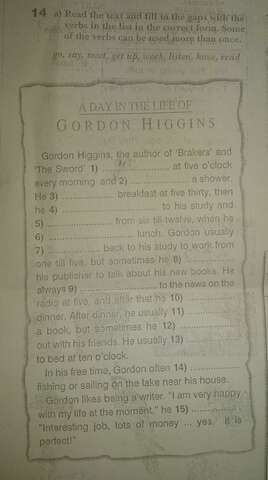 14 a) Read the text and fill in the gaps with the
verbs in the list in the correct form. Some
of the verbs can be used more than once.
go, say, meet, get up, work, listen, have, read
A DAY IN THE LIFE OF
GORDON HIGGINS
Gordon Higgins, the author of 'Brakera' and
'The Sword' 1) .................... at five o'clock
every morning and 2) .................... a shower.
He 3) .................... breakfast at five thirty, then
he 4) .................... to his study and
5) .................... from six till twelve, when he
6) .................... lunch. Gordon usually
7) .................... back to his study to work from
one till five, but sometimes he 8) ....................
his publisher to talk about his new books. He
always 9) .................... to the news on the
radio at five, and after that he 10) ....................
dinner. After dinner, he usually 11) ....................
a book, but sometimes he 12) ....................
out with his friends. He usually 13) ....................
to bed at ten o'clock.
In his free time, Gordon often 14) ....................
fishing or sailing on the lake near his house.
Gordon likes being a writer. "I am very happy
with my life at the moment," he 15) ....................
"Interesting job, lots of money ... yes, it is
perfect!"